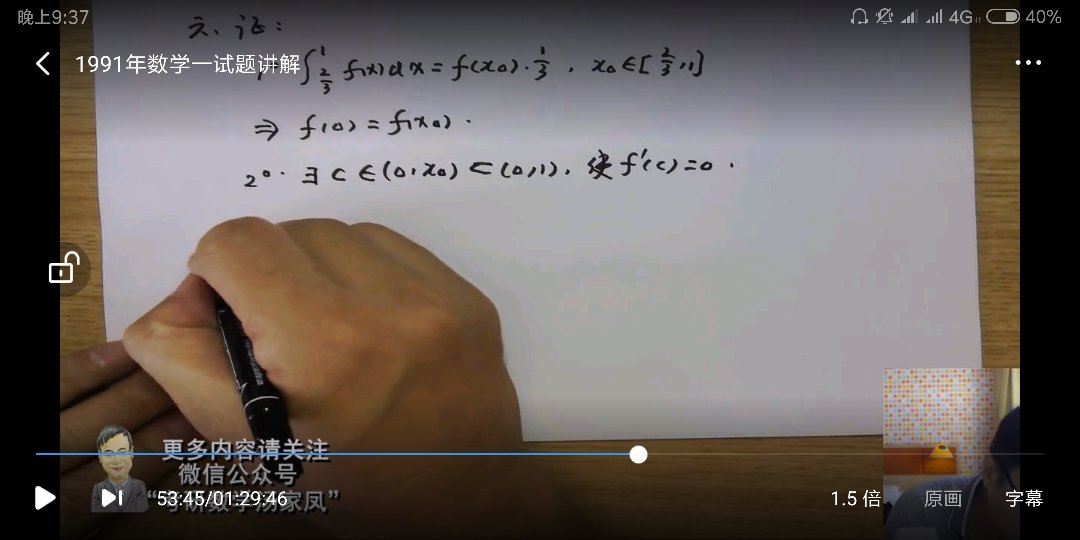 晚上9:37
4G
40%
六、证:
1991年数学一试题讲解
∫_{2/3}^{1} f(x)dx = f(x₀)·1/3 , x₀∈[2/3,1]
⇒ f(0) = f(x₀).
2°. ∃ c ∈(0,x₀)⊂(0,1), 使 f'(c)=0 .
更多内容请关注
微信公众号
53:45/01:29:46
1.5 倍
原画
字幕